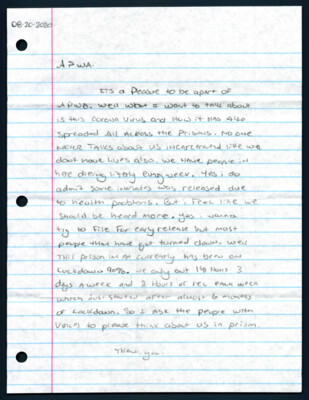 08-20-2020
APWA.
ITS a Pleasure to be apart of
APWA. Well what I want to talk about
is this Corona Virus and How it Has Also
Spreaded All Across the Prisons. No one
NEVER TALKS about US incarcerated like we
dont have lives also. We Have people in
here dieing literly Every week. Yes i do
admit some inmates was released due
to health problems. But i Feel like we
should be heard more. Yes i wanna
try to File For early release but most
people that have got turned down. Well
THIS prison im at currently has been on
Lockdown 90%. We only out 1½ Hours 3
days a week and 2 Hours of rec each week
which just started after almost 6 months
of Lockdown. So I ask the people with
Voices to please think about us in prison.
Thank you.